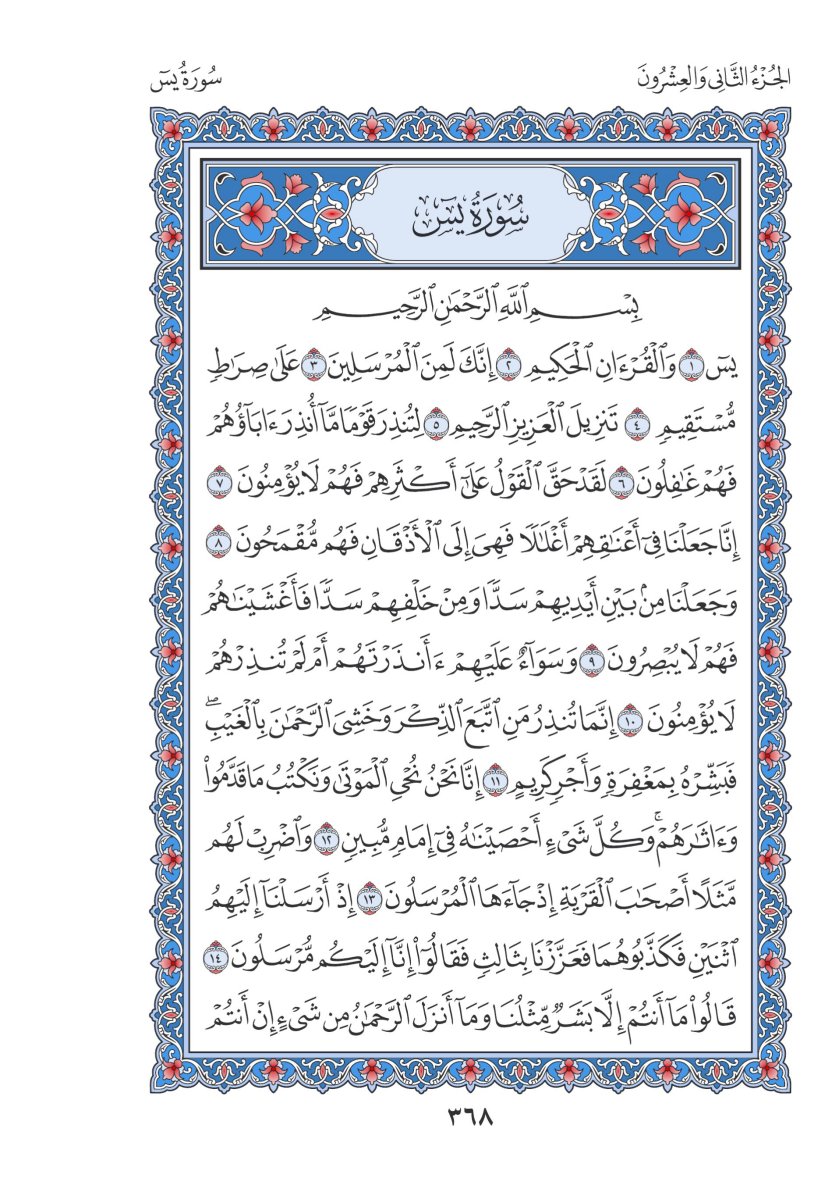 الجُزْءُ الثَّانِي وَالعِشْرُونَ
سُورَةُ يسٓ
سُورَةُ يسٓ
بِسۡمِ ٱللَّهِ ٱلرَّحۡمَٰنِ ٱلرَّحِيمِ
يسٓ ١ وَٱلۡقُرۡءَانِ ٱلۡحَكِيمِ ٢ إِنَّكَ لَمِنَ ٱلۡمُرۡسَلِينَ ٣ عَلَىٰ صِرَٰطٖ
مُّسۡتَقِيمٖ ٤ تَنزِيلَ ٱلۡعَزِيزِ ٱلرَّحِيمِ ٥ لِتُنذِرَ قَوۡمٗا مَّآ أُنذِرَ ءَابَآؤُهُمۡ
فَهُمۡ غَٰفِلُونَ ٦ لَقَدۡ حَقَّ ٱلۡقَوۡلُ عَلَىٰٓ أَكۡثَرِهِمۡ فَهُمۡ لَا يُؤۡمِنُونَ ٧
إِنَّا جَعَلۡنَا فِيٓ أَعۡنَٰقِهِمۡ أَغۡلَٰلٗا فَهِيَ إِلَى ٱلۡأَذۡقَانِ فَهُم مُّقۡمَحُونَ ٨
وَجَعَلۡنَا مِنۢ بَيۡنِ أَيۡدِيهِمۡ سَدّٗا وَمِنۡ خَلۡفِهِمۡ سَدّٗا فَأَغۡشَيۡنَٰهُمۡ
فَهُمۡ لَا يُبۡصِرُونَ ٩ وَسَوَآءٌ عَلَيۡهِمۡ ءَأَنذَرۡتَهُمۡ أَمۡ لَمۡ تُنذِرۡهُمۡ
لَا يُؤۡمِنُونَ ١٠ إِنَّمَا تُنذِرُ مَنِ ٱتَّبَعَ ٱلذِّكۡرَ وَخَشِيَ ٱلرَّحۡمَٰنَ بِٱلۡغَيۡبِۖ
فَبَشِّرۡهُ بِمَغۡفِرَةٖ وَأَجۡرٖ كَرِيمٍ ١١ إِنَّا نَحۡنُ نُحۡيِ ٱلۡمَوۡتَىٰ وَنَكۡتُبُ مَا قَدَّمُواْ
وَءَاثَٰرَهُمۡۚ وَكُلَّ شَيۡءٍ أَحۡصَيۡنَٰهُ فِيٓ إِمَامٖ مُّبِينٖ ١٢ وَٱضۡرِبۡ لَهُم
مَّثَلًا أَصۡحَٰبَ ٱلۡقَرۡيَةِ إِذۡ جَآءَهَا ٱلۡمُرۡسَلُونَ ١٣ إِذۡ أَرۡسَلۡنَآ إِلَيۡهِمُ
ٱثۡنَيۡنِ فَكَذَّبُوهُمَا فَعَزَّزۡنَا بِثَالِثٖ فَقَالُوٓاْ إِنَّآ إِلَيۡكُم مُّرۡسَلُونَ ١٤
قَالُواْ مَآ أَنتُمۡ إِلَّا بَشَرٞ مِّثۡلُنَا وَمَآ أَنزَلَ ٱلرَّحۡمَٰنُ مِن شَيۡءٍ إِنۡ أَنتُمۡ
٣٦٨